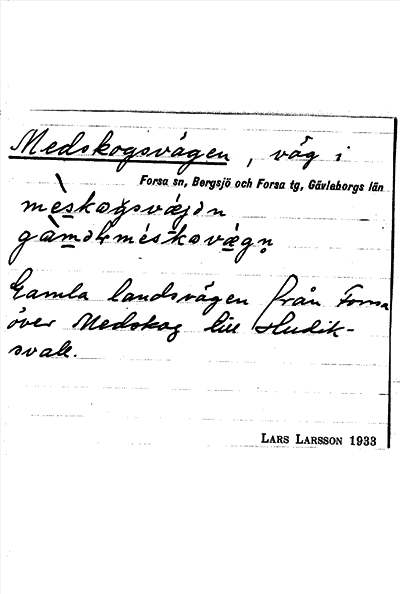 Medskogsvägen, väg i
Forsa sn, Bergsjö och Forsa tg, Gävleborgs län
Gamla landsvägen från Forsa
över Medskog till Hudik-
svall.
LARS LARSSON 1933